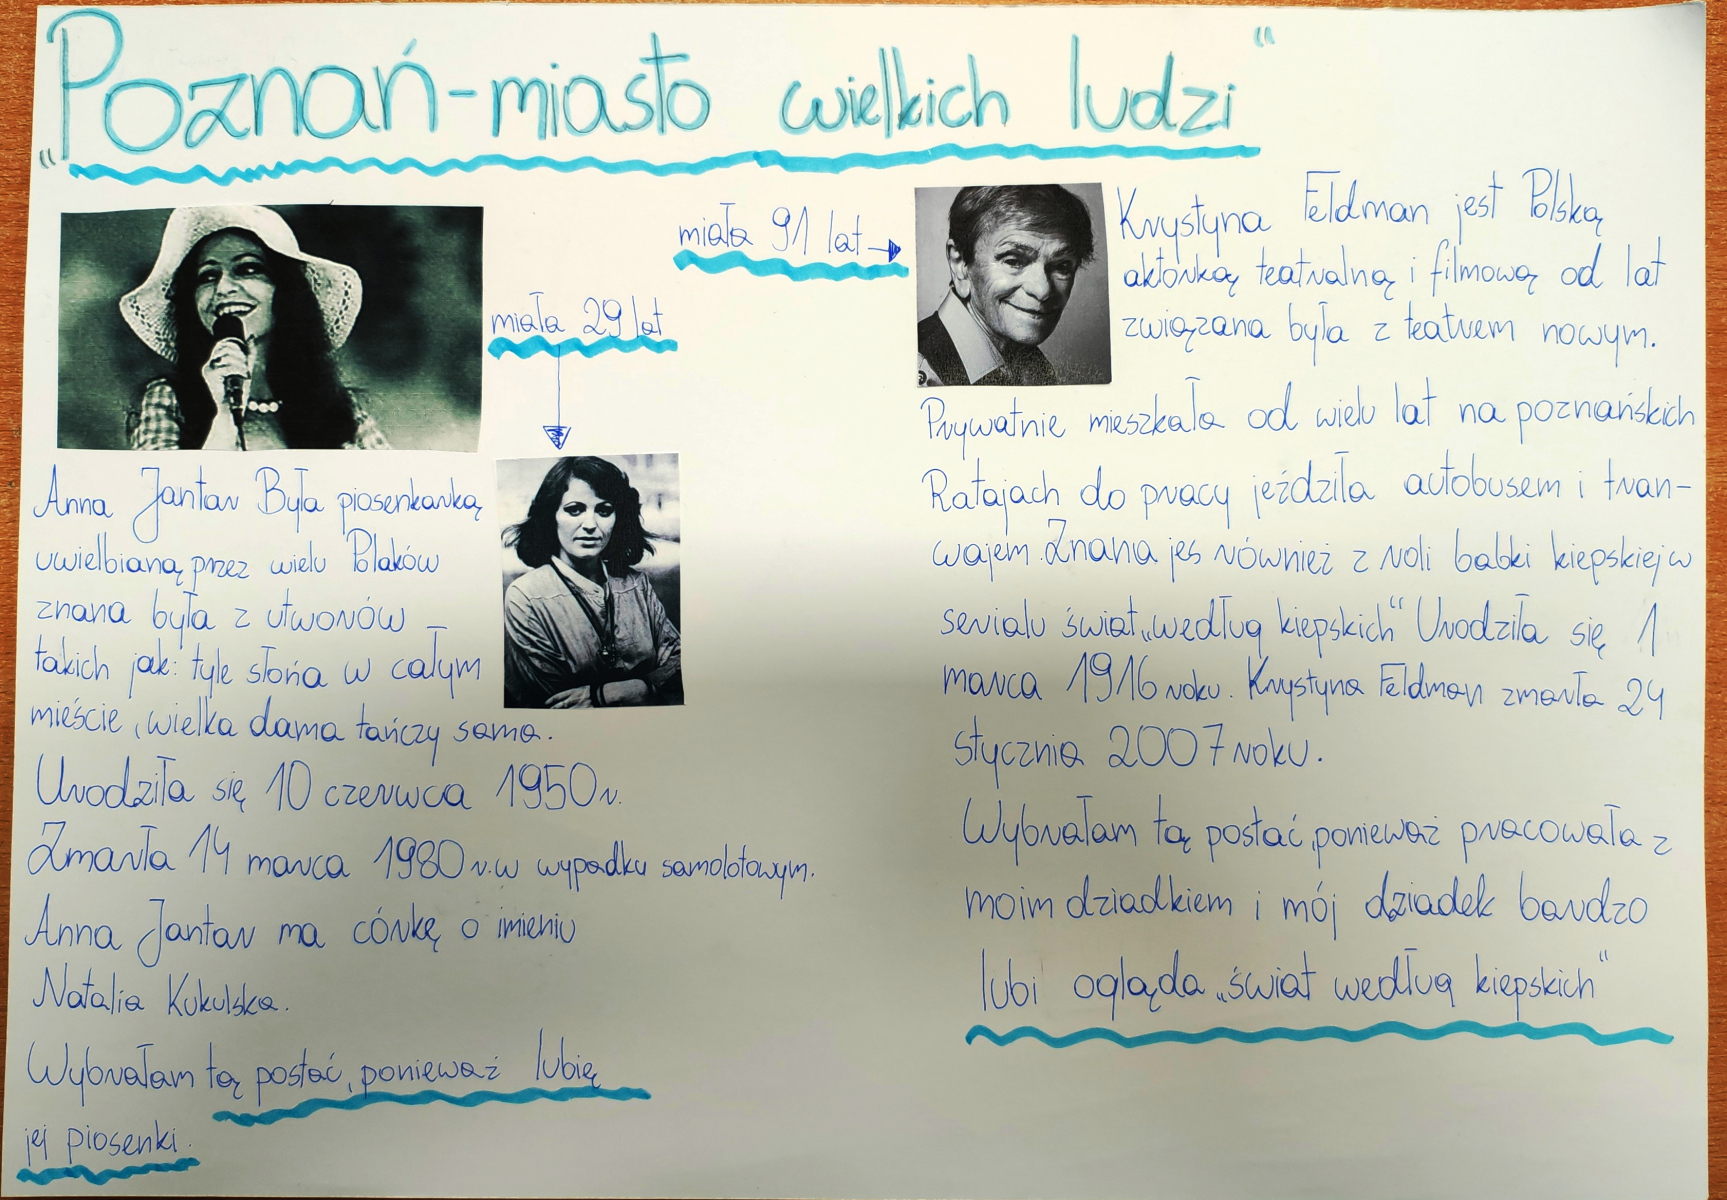 „Poznań-miasto wielkich ludzi“
miała 29 lat
Anna Jantar Była piosenkarką
uwielbianą przez wielu Polaków
znana była z utworów
takich jak: tyle słońa w całym
mieście, wielka dama tańczy sama.
Urodziła się 10 czerwca 1950r.
Zmarła 14 marca 1980r.w wypadku samolotowym.
Anna Jantar ma córkę o imieniu
Natalia Kukulska.
Wybrałam tą postać, ponieważ lubię
jej piosenki.
miała 91 lat
Krystyna Feldman jest Polską
aktorką teatralną i filmową od lat
związana była z teatrem nowym.
Prywatnie mieszkała od wielu lat na poznańskich
Ratajach do pracy jeździła autobusem i tran-
wajem. Znana jes również z roli babki kiepskiej w
serialu świat „według kiepskich“ Urodziła się 1
marca 1916 roku. Krystyna Feldman zmarła 24
stycznia 2007 roku.
Wybrałam tą postać, ponieważ pracowała z
moim dziadkiem i mój dziadek bardzo
lubi ogląda „świat według kiepskich“